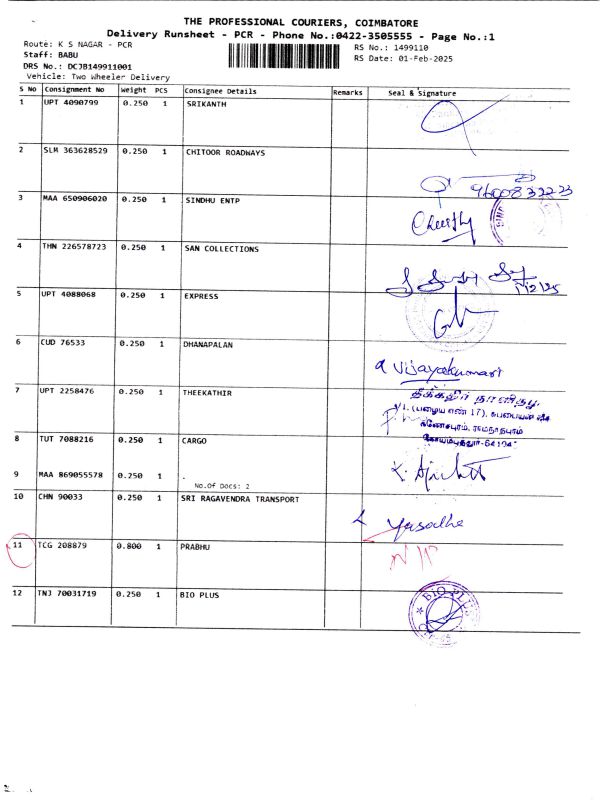 THE PROFESSIONAL COURIERS, COIMBATORE
Delivery Runsheet - PCR - Phone No.:0422-3505555 - Page No.:1
Route: K S NAGAR - PCR
RS No.: 1499110
Staff: BABU
RS Date: 01-Feb-2025
DRS No.: DCJB149911001
Vehicle: Two Wheeler Delivery
S No Consignment No Weight PCS Consignee Details Remarks Seal & Signature
1 UPT 4090799 0.250 1 SRIKANTH
2 SLM 363628529 0.250 1 CHITOOR ROADWAYS
9600832223
3 MAA 650906020 0.250 1 SINDHU ENTP
4 THN 226578723 0.250 1 SAN COLLECTIONS
5 UPT 4088068 0.250 1 EXPRESS
6 CUD 76533 0.250 1 DHANAPALAN
Vijayakumari
7 UPT 2258476 0.250 1 THEEKATHIR
தீக்கதிர் நாளிதழ்,
(பழைய எண் 17), சுப்பையன் வீதி
கணேசபுரம், ராமநாதபுரம்
8 TUT 7088216 0.250 1 CARGO
9 MAA 869055578 0.250 1 .
No.Of Docs: 2
10 CHN 90033 0.250 1 SRI RAGAVENDRA TRANSPORT
Yasodhe
11 TCG 208879 0.800 1 PRABHU
12 TNJ 70031719 0.250 1 BIO PLUS